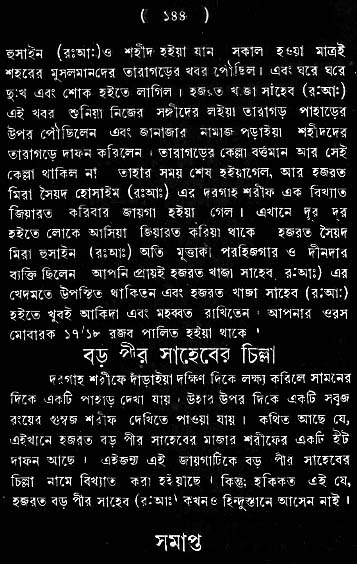 ( ১৪৪ )
হুসাইন (রঃআঃ)ও শহীদ হইয়া যান সকাল হওয়া মাত্রই
শহরের মুসলমানদের তারাগড়ের খবর পৌছিল। এবং ঘরে ঘরে
দুঃখ এবং শোক হইতে লাগিল। হজরত খাজা সাহেব (র:আঃ)
এই খবর শুনিয়া নিজের সঙ্গীদের লইয়া তারাগড় পাহাড়ের
উপর পৌছিলেন এবং জানাজার নামাজ পড়াইয়া শহীদদের
তারাগড়ে দাফন করিলেন। তারাগড়ের কেল্লা বর্ত্তমান আর সেই
কেল্লা থাকিল না তাহার সময় শেষ হইয়াগেল, আর হজরত
মিরা সৈয়দ হোসাইম (রঃআঃ) এর দরগাহ শরীফ এক বিখ্যাত
জিয়ারত করিবার জায়গা হইয়া গেল। এখানে দূর দূর
হইতে লোকে আসিয়া জিয়ারত করিয়া থাকে হজরত সৈয়দ
মিরা হুসাইন (রঃআঃ) অতি মুত্তাকী পরহিজগার ও দীনদার
ব্যক্তি ছিলেন আপনি প্রায়ই হজরত খাজা সাহেব র:আঃ) এর
খেদমতে উপস্থিত থাকিতেন এবং হজরত খাজা সাহেব (র:আঃ)
হইতে খুবই আকিদা এবং মহব্বত রাখিতেন। আপনার ওরস
মোবারক ১৭/১৮ রজব পালিত হইয়া থাকে।
বড় পীর সাহেবের চিল্লা
দরগাহ শরীফে দাঁড়াইয়া দক্ষিণ দিকে লক্ষ্য করিলে সামনের
দিকে একটি পাহাড় দেখা যায়। উহার উপর দিকে একটি সবুজ
রংয়ের গুম্বজ শরীফ দেখিতে পাওয়া যায়। কথিত আছে যে,
এইখানে হজরত বড় পীর সাহেবের মাজার শরীফের একটি ইট
দাফন আছে। এইজন্য এই জায়গাটিকে বড় পীর সাহেবের
চিল্লা নামে বিখ্যাত করা হইয়াছে। কিন্তু; হকিকত এই যে,
হজরত বড় পীর সাহেব (র:আঃ) কখনও হিন্দুস্তানে আসেন নাই।
সমাপ্ত